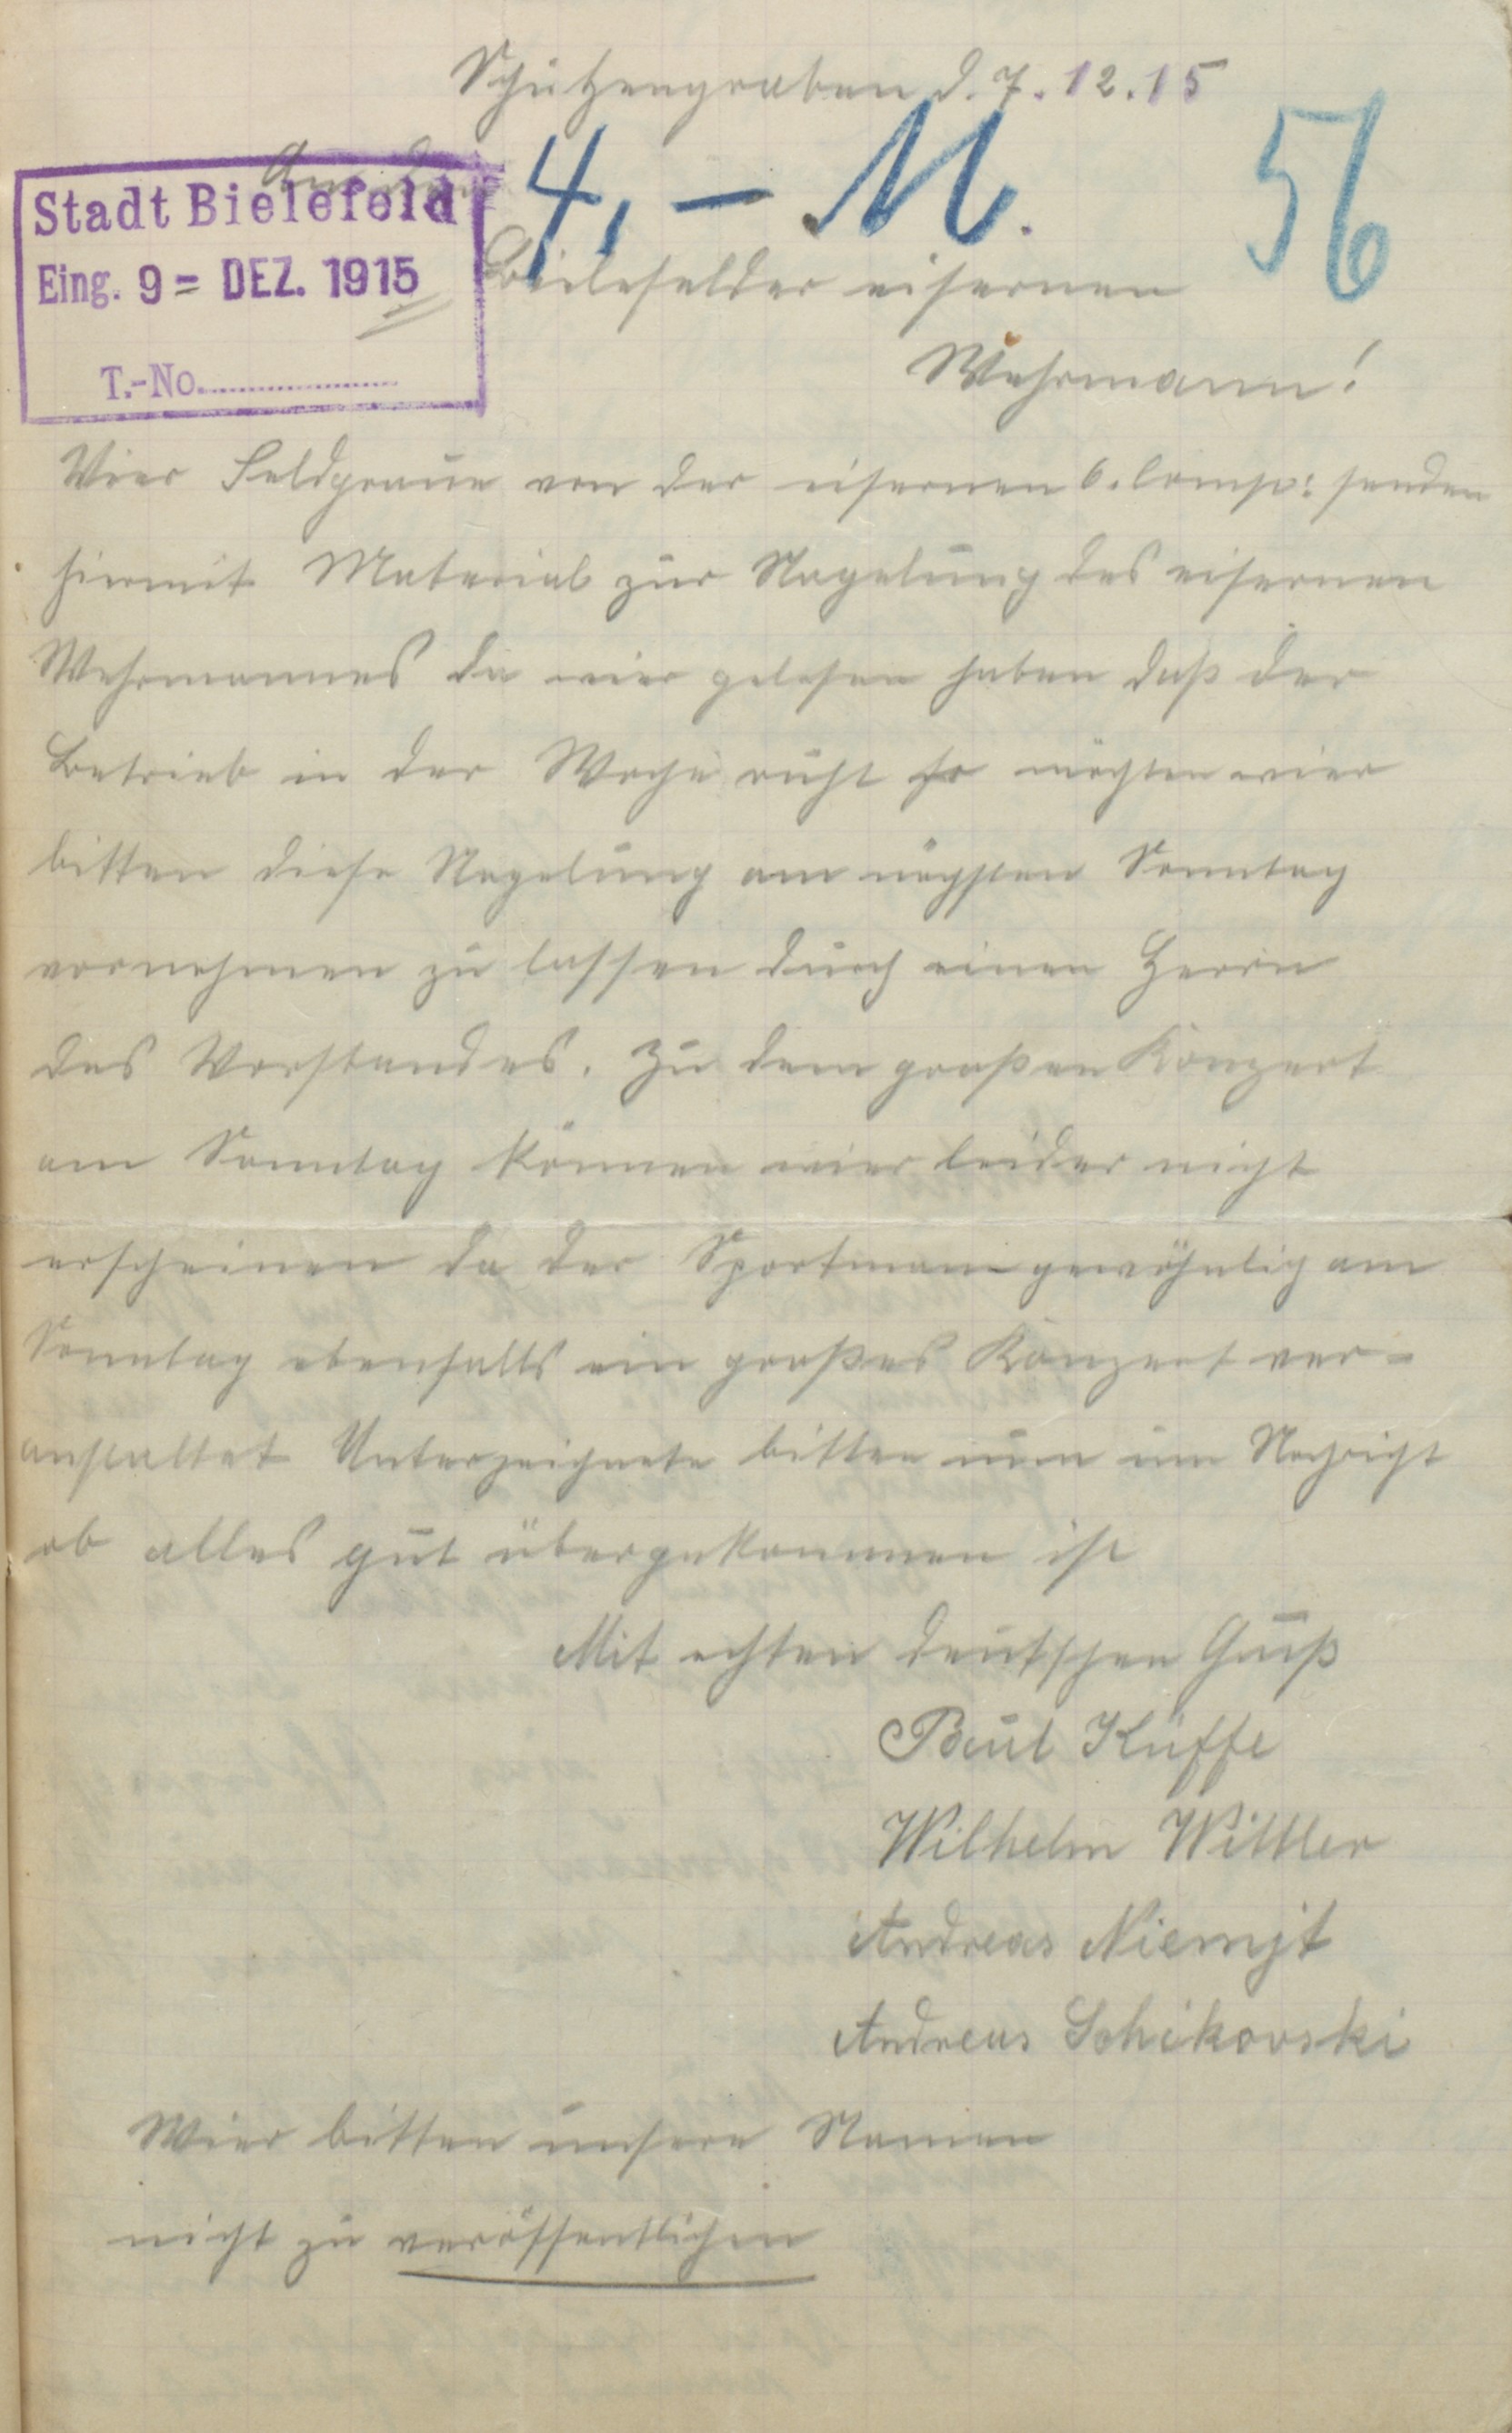 Schützengraben d. 7. 12. 15
4,- M.
56
An den
Stadt Bielefeld
Eing. 9 = DEZ. 1915
T.-No.
Bielefelder eisernen
Wehrmann!
Vier Feldgraue von der eisernen 6. Comp: senden
hiermit Material zur Nagelung des eisernen
Wehrmannes da wier gelesen haben daß der
Betrieb in der Woche ruht so möchten wier
bitten diese Nagelung am nächsten Sonntag
vornehmen zu lassen durch einen Herrn
des Vorstandes. Zu dem großen Konzert
am Sonntag können wier leider nicht
erscheinen da der Sportmann gewöhnlich am
Sonntag ebenfalls ein großes Konzert ver-
anstaltet Unterzeichnete bitten nun um Nachricht
ob alles gut übergekommen ist
Mit echten deutschen Gruß
Paul Küffe
Wilhelm Wittler
Andreas
Andreas Schikovski
Wier bitten unsere Namen
nicht zu veröffentlichen